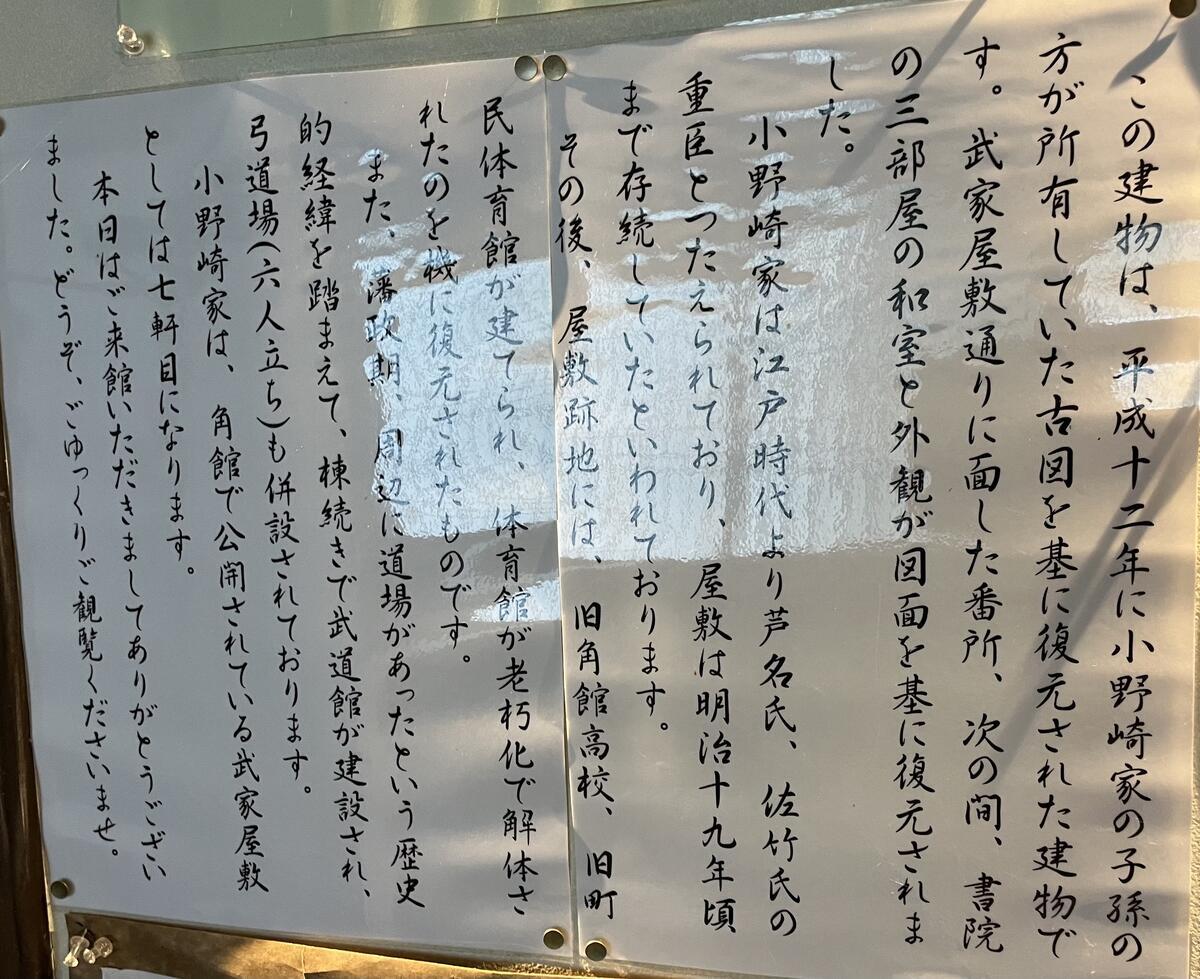 この建物は、平成十二年に小野崎家の子孫の
方が所有していた古図を基に復元された建物で
す。武家屋敷通りに面した番所、次の間、書院
の三部屋の和室と外観が図面を基に復元されま
した。
小野崎家は江戸時代より芦名氏、佐竹氏の
重臣とつたえられており、屋敷は明治十九年頃
まで存続していたといわれております。
その後、屋敷跡地には、旧角館高校、旧町
民体育館が建てられ、体育館が老朽化で解体さ
れたのを機に復元されたものです。
また、藩政期、周辺に道場があったという歴史
的経緯を踏まえて、棟続きで武道館が建設され、
弓道場(六人立ち)も併設されております。
小野崎家は、角館で公開されている武家屋敷
としては七軒目になります。
本日はご来館いただきましてありがとうござい
ました。どうぞ、ごゆっくりご観覧くださいませ。